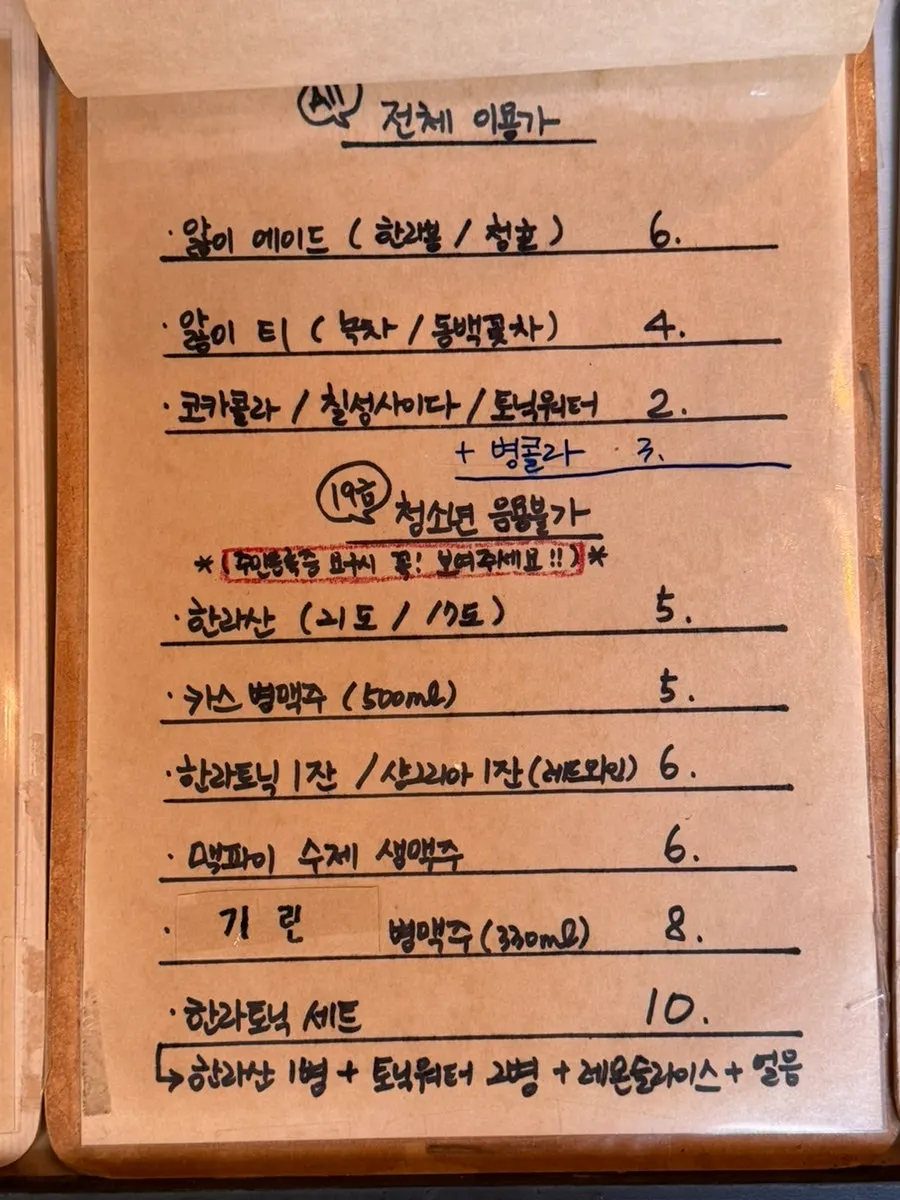 All 전체 이용가
· 앓이 에이드 ( 한라봉 / 청귤 ) 6.
· 앓이 티 ( 녹차 / 동백꽃차 ) 4.
· 코카콜라 / 칠성사이다 / 토닉워터 2.
+ 병콜라 · 3.
19금 청소년 음용불가
* (주민등록증 먼저 꼭! 보여주세요!!) *
· 한라산 (21도 / 17도) 5.
· 카스 병맥주 (500ml) 5.
· 한라토닉 1잔 / 샹그리아 1잔 (레드와인) 6.
· 맥파이 수제 생맥주 6.
· 기린 병맥주 (330ml) 8.
· 한라토닉 세트 10.
↳ 한라산 1병 + 토닉워터 2병 + 레몬슬라이스 + 얼음